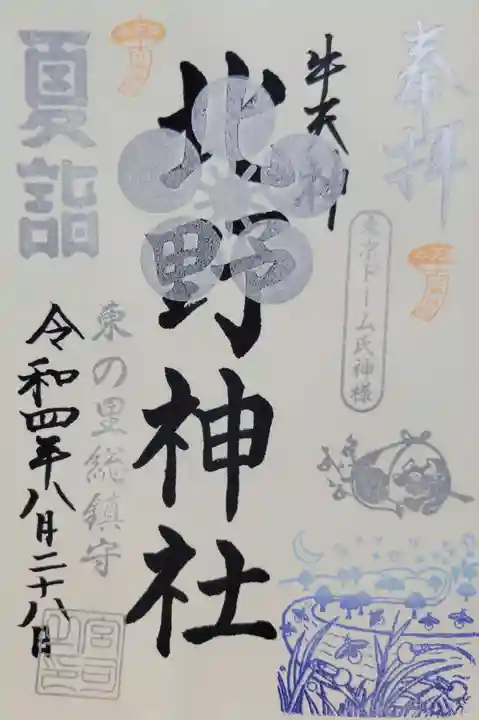 奉拝
東京ドーム氏神様
牛天神
北野神社
夏詣
東の里総鎮守
令和四年八月二十八日